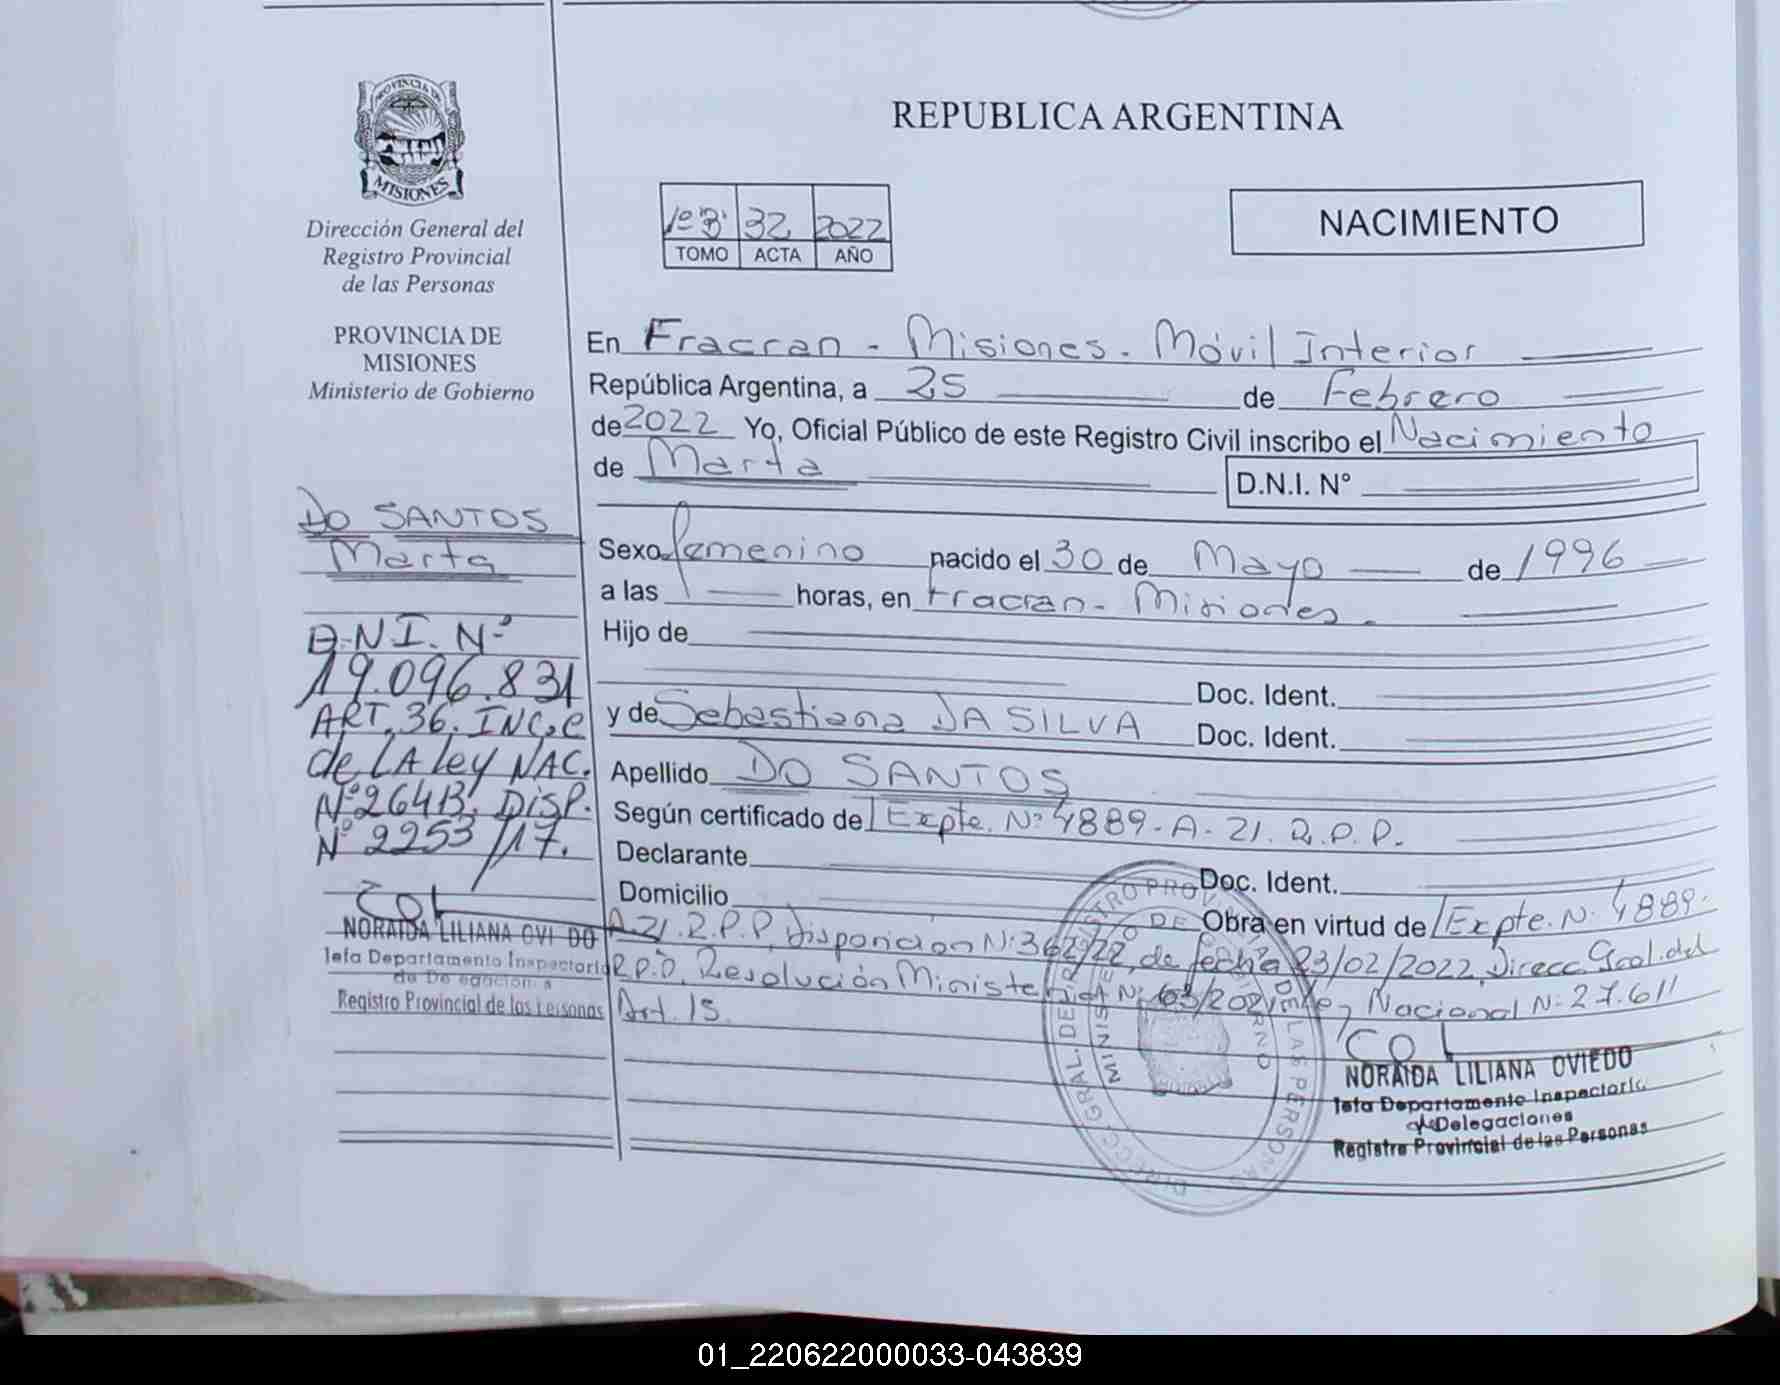 REPUBLICA ARGENTINA
PROVINCIA DE
MISIONES
Dirección General del
Registro Provincial
de las Personas
PROVINCIA DE
MISIONES
Ministerio de Gobierno
1º B 32 2022
TOMO ACTA AÑO
NACIMIENTO
En Fracran - Misiones - Móvil Interior
República Argentina, a 25 de Febrero
de 2022 Yo, Oficial Público de este Registro Civil inscribo el Nacimiento
de Marta D.N.I. Nº
Sexo femenino nacido el 30 de Mayo de 1996
a las horas, en Fracran - Misiones.
Hijo de
Doc. Ident.
y de Sebastiana DA SILVA Doc. Ident.
Apellido DO SANTOS
Según certificado de Expte. Nº 4889-A-21. R.P.P.
Declarante Doc. Ident.
Domicilio Obra en virtud de Expte. Nº 4889-
A-21.R.P.P, Disposición Nº 362/22, de fecha 23/02/2022, Direcc. Gral. del
R.P.P, Resolución Ministerial Nº 63/2021, Ley Nacional Nº 27.611
Art. 15.
DO SANTOS
Marta
D.N.I. Nº
19.096.831
ART. 36. INC. C
de LA ley NAC.
Nº 26413. DISP.
Nº 2253/17.
NORAIDA LILIANA OVIEDO
Jefa Departamento Inspectoría
de Delegaciones
Registro Provincial de las Personas
NORAIDA LILIANA OVIEDO
Jefa Departamento Inspectoría
de Delegaciones
Registro Provincial de las Personas
01_220622000033-043839